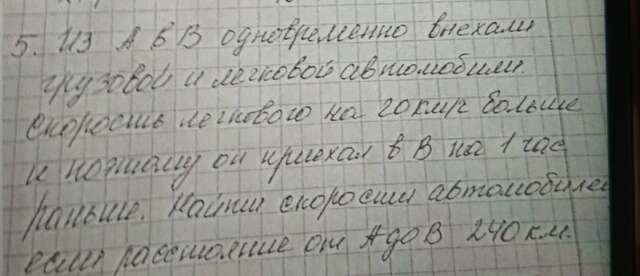 5. Из А в В одновременно выехали
грузовой и легковой автомобили.
Скорость легкового на 20 км/ч больше
и поэтому он приехал в В на 1 час
раньше. Найти скорости автомобилей
если расстояние от А до В 240 км.